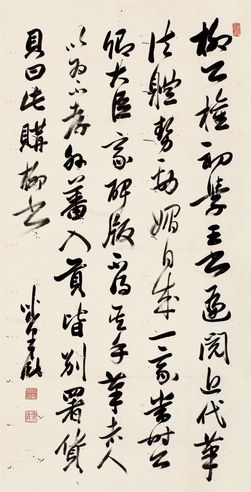 柳公權初學王書遍閱近代筆
法體勢勁媚自成一家當時公
卿大臣家碑版其手筆者人
以為不孝外蕃入貢皆別署貨
貝曰此購柳書